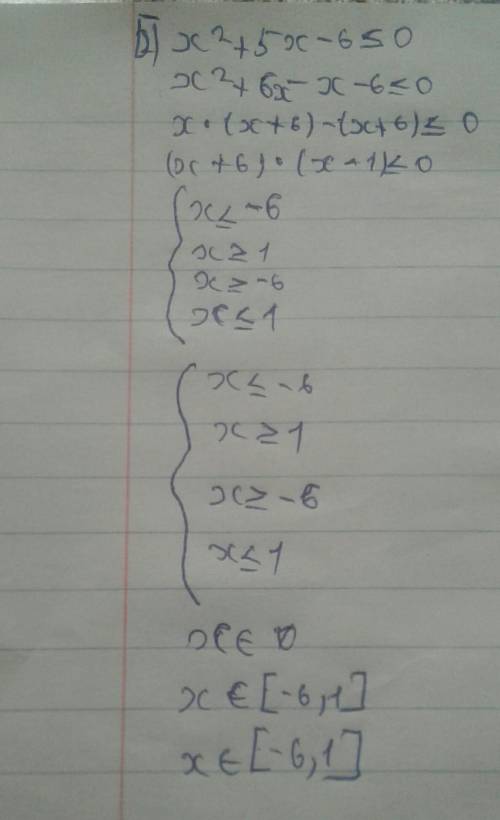 б) x²+5x-6≤0
x²+6x-x-6≤0
x·(x+6)-(x+6)≤0
(x+6)·(x-1)≤0
x≤-6
x≥1
x≥-6
x≤1
x≤-6
x≥1
x≥-6
x≤1
x∈0
x∈[-6,1]
x∈[-6,1]